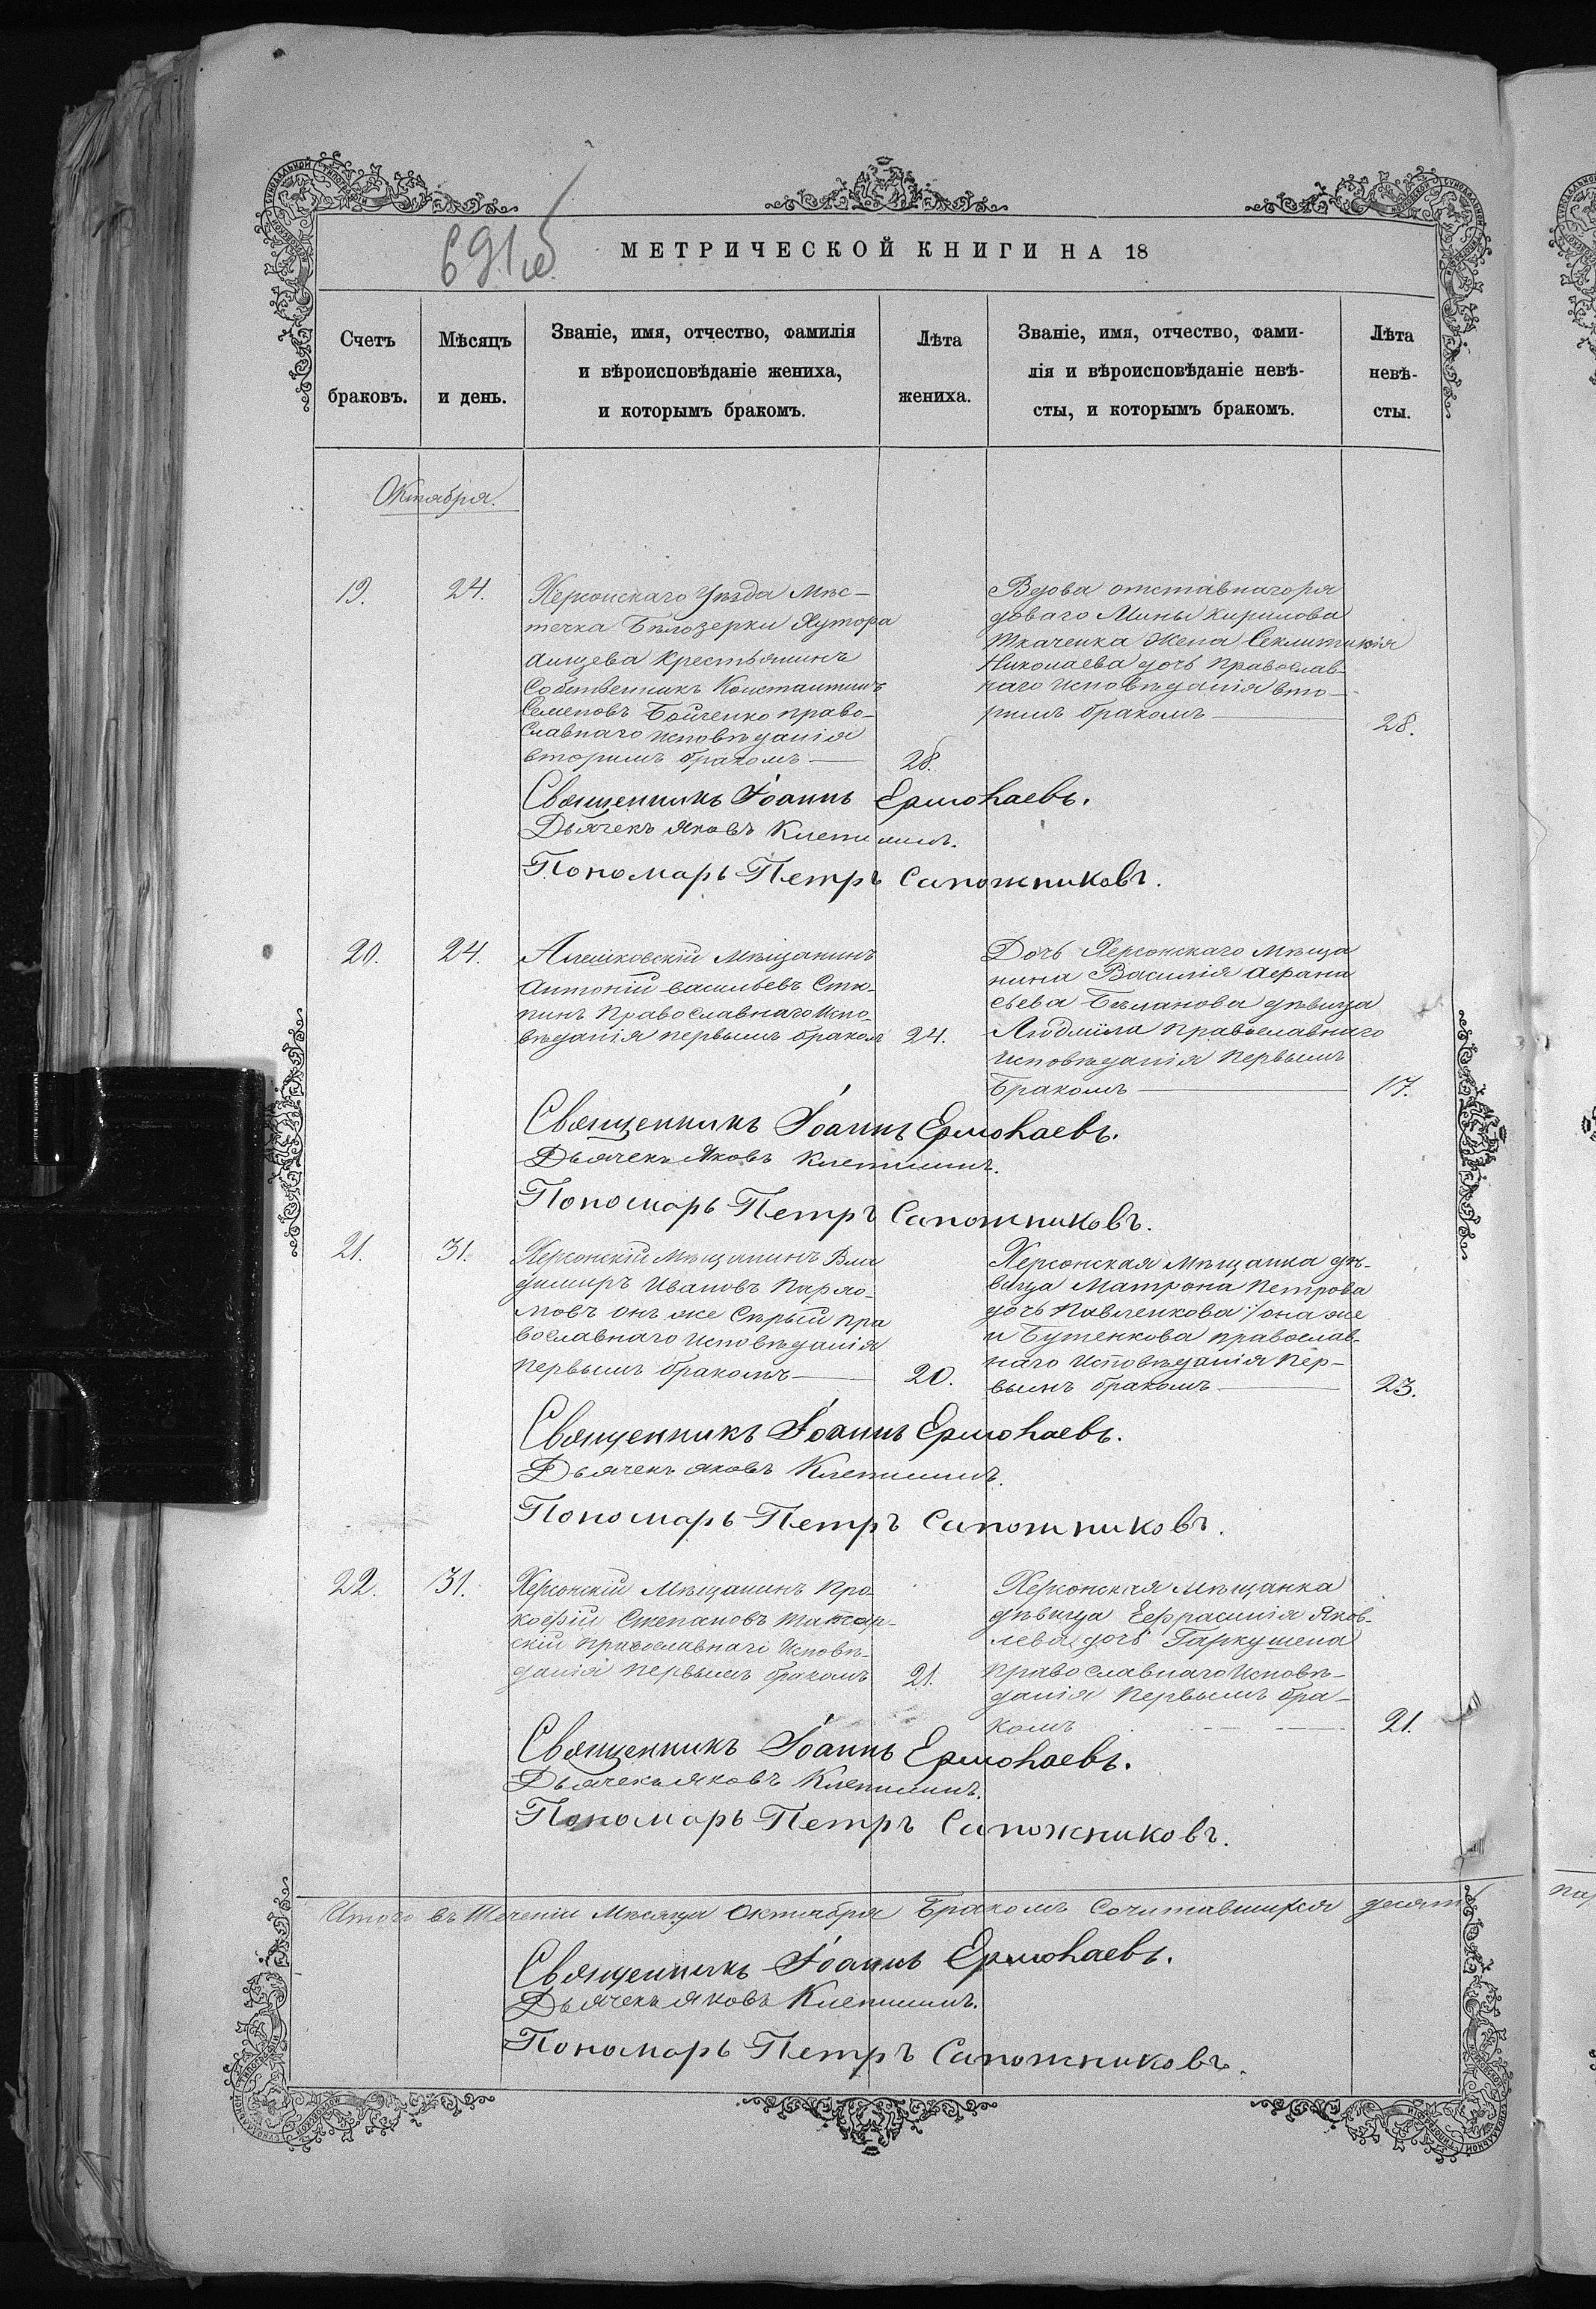 691 об
МЕТРИЧЕСКОЙ КНИГИ НА 18
Счетъ браковъ.
Мѣсяцъ и день.
Званіе, имя, отчество, фамилія
и вѣроисповѣданіе жениха,
и которымъ бракомъ.
Лѣта жениха.
Званіе, имя, отчество, фами-
лія и вѣроисповѣданіе невѣ-
сты, и которымъ бракомъ.
Лѣта невѣ-
сты.
Октября.
19.
24.
Херсонскаго Уѣзда Мѣс-
течка Бѣлозерки Хутора
крестьянинъ
Собственникъ Константинъ
Семеновъ Бойченко право-
славнаго исповѣданія
вторымъ бракомъ
28.
Вдова отставнаго ря
доваго Мины Кирилова
Ткаченка жена Секлитикія
Николаева дочь православ-
наго исповѣданія вто-
рымъ бракомъ
28.
Священникъ Іоаннъ Ермолаевъ.
Дьячекъ Яковъ
Пономарь Петръ Сапожниковъ.
20.
24.
Алешковскій Мѣщанинъ
Антоній Васильевъ Стю-
пинъ Православнаго Испо-
вѣданія первымъ бракомъ
24.
Дочь Херсонскаго Мѣща
нина Василія Афана
сьева Бѣланова дѣвица
Людміла Православнаго
исповѣданія первымъ
Бракомъ
17.
Священникъ Іоаннъ Ермолаевъ.
Дьячекъ Яковъ
Пономарь Петръ Сапожниковъ.
21.
31.
Херсонскій Мѣщанинъ Вла
димиръ Ивановъ Парѳо-
мовъ онъ же Сѣрый пра
вославнаго исповѣданія
первымъ бракомъ
20.
Херсонская мѣщанка дѣ-
вица Матрона Петрова
дочь Павленкова :/она же
и Бутенкова православ-
наго исповѣданія пер-
вымъ бракомъ
23.
Священникъ Іоаннъ Ермолаевъ.
Дьячекъ Яковъ
Пономарь Петръ Сапожниковъ.
22.
31.
Херсонскій Мѣщанинъ Про-
кофій Степановъ Татар-
скій православнаго Исповѣ-
данія первымъ бракомъ
21.
Херсонская мѣщанка
дѣвица Ефрасинія Яков-
лева дочь Гаркушена
православнаго Исповѣ-
данія первымъ бра-
комъ
21.
Священникъ Іоаннъ Ермолаевъ.
Дьячекъ Яковъ
Пономарь Петръ Сапожниковъ.
Итого въ Теченіи Мѣсяца Октября Бракомъ Сочитавшихся десять
Священникъ Іоаннъ Ермолаевъ.
Дьячекъ Яковъ
Пономарь Петръ Сапожниковъ.